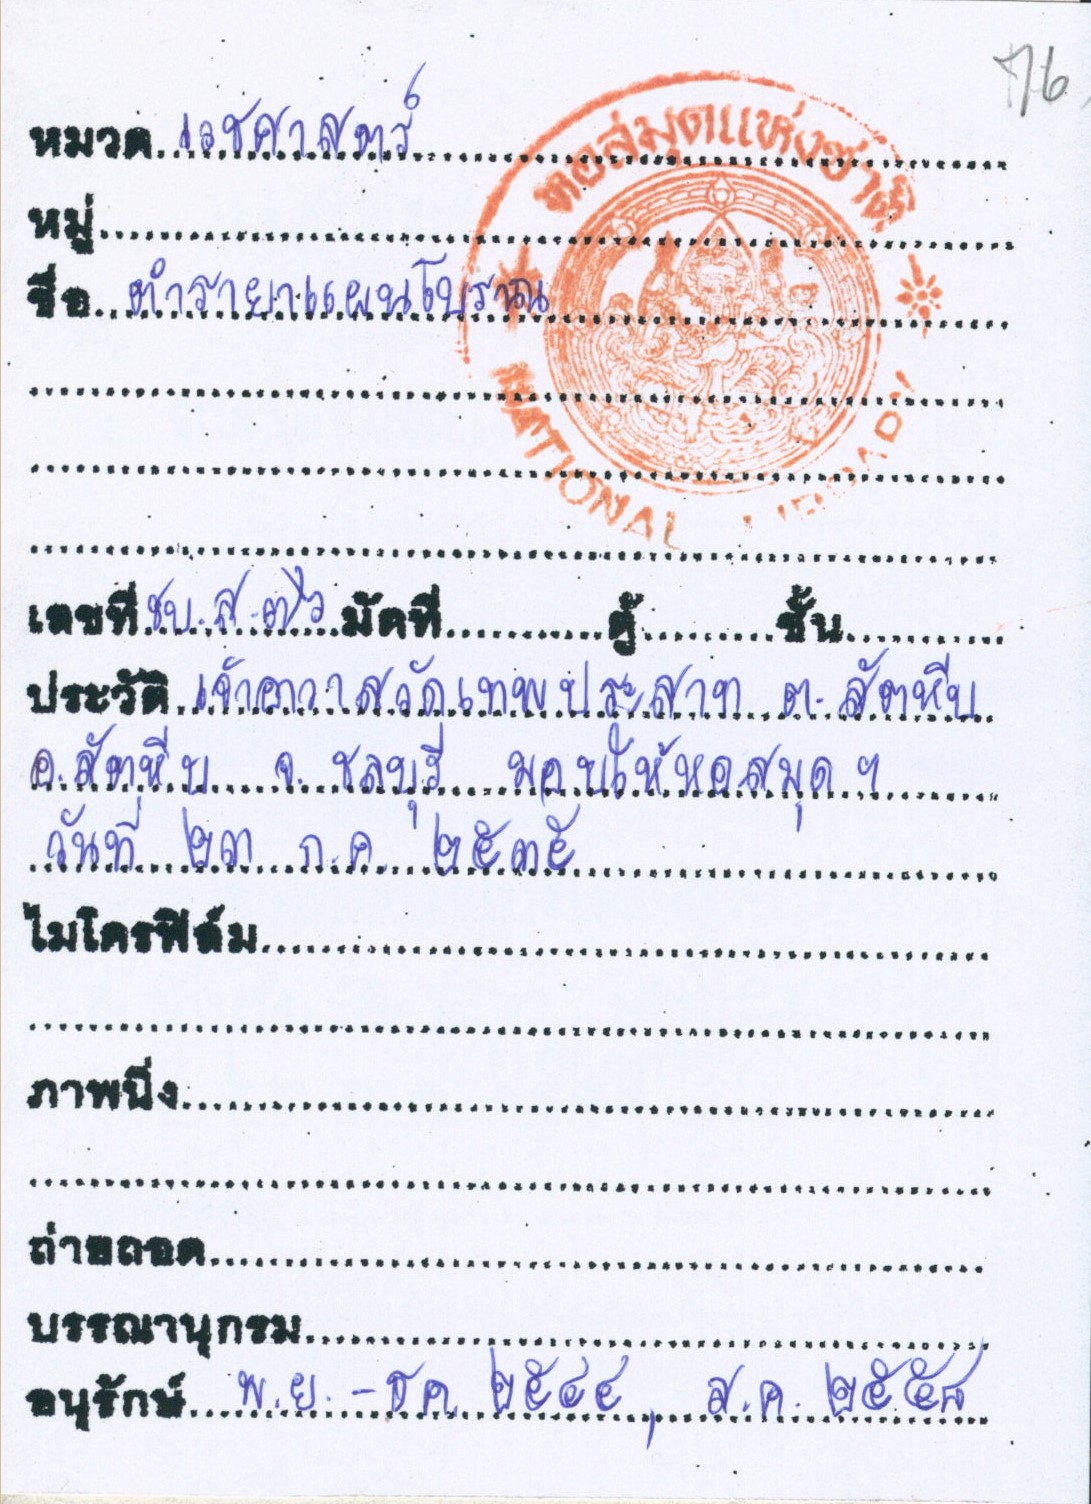 76
หมวด เวชศาสตร์
หอสมุดแห่งชาติ
หมู่
ชื่อ ตำรายาแผนโบราณ
NATIONAL LIBRARY
เลขที่ ชบ.ส.๓๖ มัดที่ ตู้ ชั้น
ประวัติ เจ้าอาวาสวัดเทพประสาท ต.สัตหีบ
อ.สัตหีบ จ.ชลบุรี มอบให้หอสมุดฯ
วันที่ ๒๓ ก.ค. ๒๕๓๕
ไมโครฟิล์ม
ภาพนิ่ง
ถ่ายถอด
บรรณานุกรม
อนุรักษ์ พ.ย. - ธค ๒๕๔๔, ส.ค. ๒๕๕๘